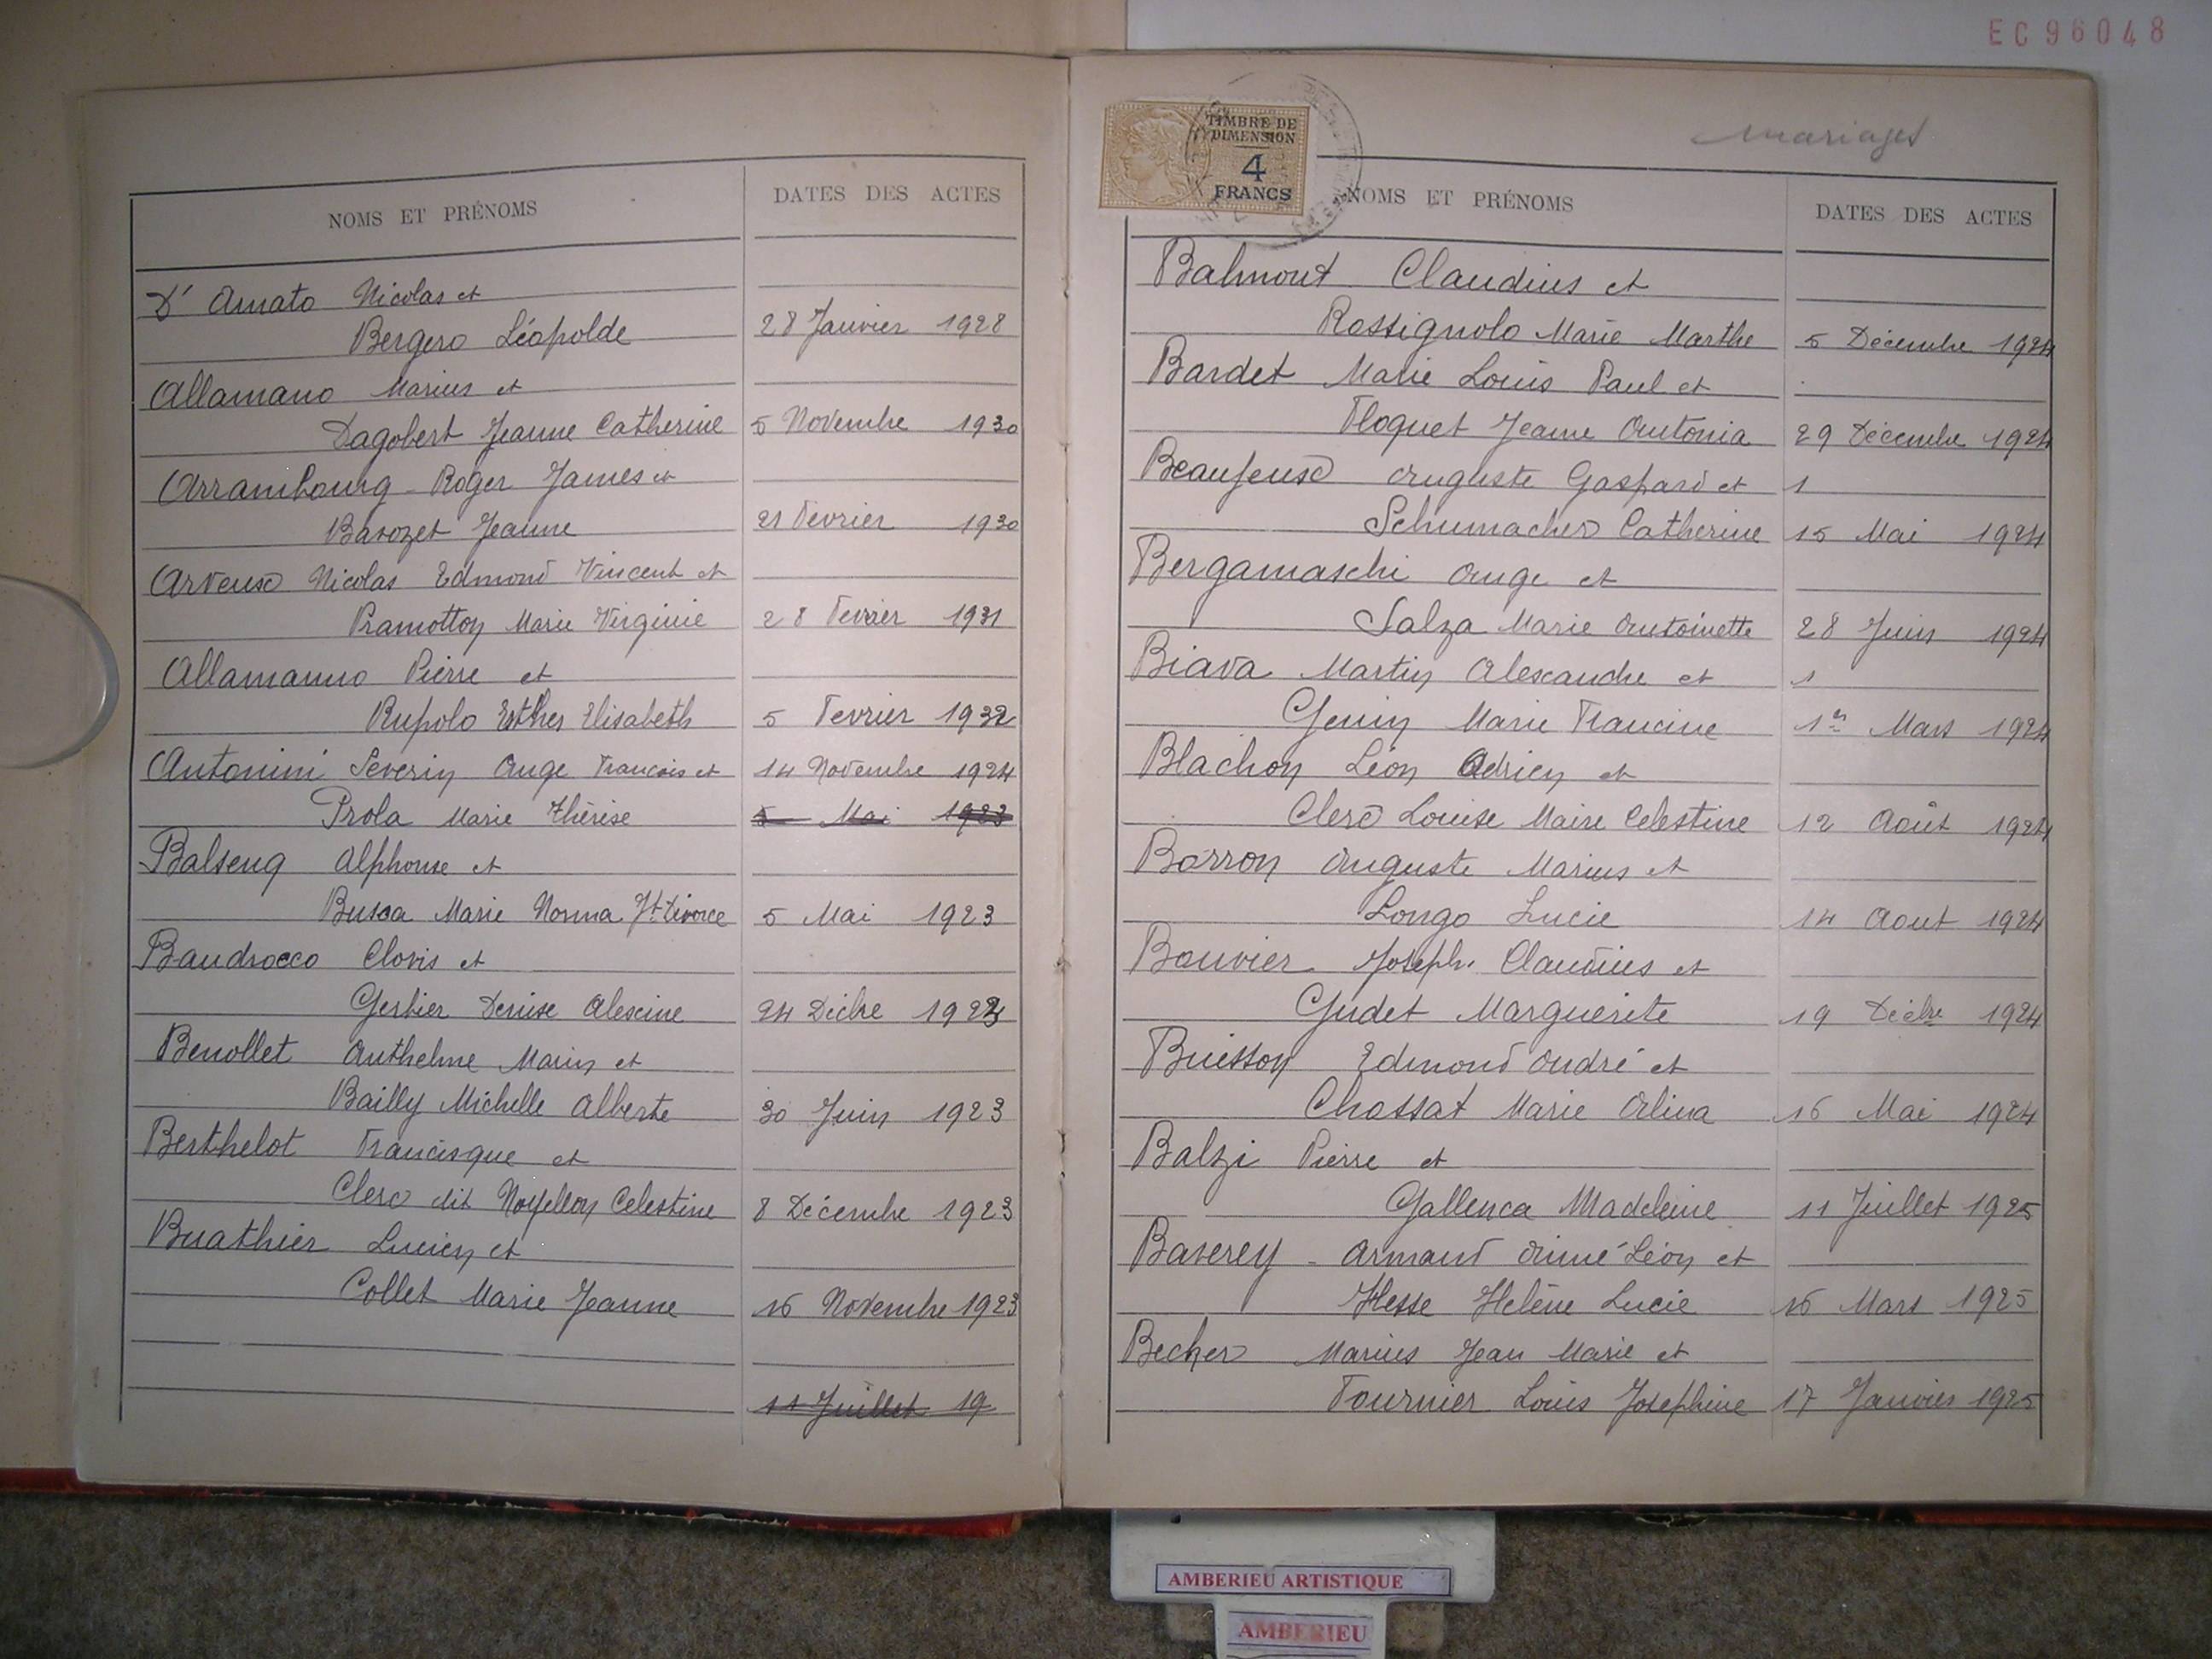 EC96048
NOMS ET PRÉNOMS DATES DES ACTES
D' Amato Nicolas et
Bergero Léopolde 28 Janvier 1928
Allamano Marius et
Dagobert Jeanne Catherine 5 Novembre 1930
Arrambourg Roger James et
Barozet Jeanne 21 Fevrier 1930
Arvenso Nicolas Edmond Vincent et
Pramotton Marie Virginie 28 Fevrier 1931
Allamanno Pierre et
Rupolo Esther Elisabeth 5 Fevrier 1932
Antonini Severin Ange Francois et 14 Novembre 1924
Prola Marie Thérèse 5 Mai 1923
Balseng Alphonse et
Busca Marie Norma Jt divorce 5 Mai 1923
Baudrocco Clovis et
Gerbier Denise Alexine 24 Décbre 1923
Benollet Anthelme Marin et
Bailly Michelle Alberte 30 Juin 1923
Berthelot Francisque et
Clerc dit Noyellon Celestine 8 Décembre 1923
Buathier Lucien et
Collet Marie Jeanne 16 Novembre 1923
11 Juillet 19
TIMBRE DE
DIMENSION
4
FRANCS
Mariages
NOMS ET PRÉNOMS DATES DES ACTES
Balmont Claudius et
Rossignolo Marie Marthe 5 Décembre 1924
Bardet Marie Louis Paul et
Floquet Jeanne Antonia 29 Décembre 1924
Auguste Gaspard et 1
Schumacher Catherine 15 Mai 1924
Bergamaschi Ange et
Salza Marie Antoinette 28 Juin 1924
Biava Martin Alexandre et 1
Genin Marie Francine 1er Mars 1924
Blachon Léon Adrien et
Clerc Louise Maire Celestine 12 Août 1924
Borron Auguste Marius et
Longo Lucie 14 Aout 1924
Bouvier Joseph Claudius et
Gudet Marguerite 19 Décbre 1924
Buisson Edmond André et
Chossat Marie Alina 16 Mai 1924
Balzi Pierre et
Gallenca Madeleine 11 Juillet 1925
Baverey Armand Aimé Léon et
Hesse Helène Lucie 16 Mars 1925
Becher Marius Jean Marie et
Fournier Louis Josephine 17 Janvier 1925
AMBERIEU ARTISTIQUE
AMBERIEU